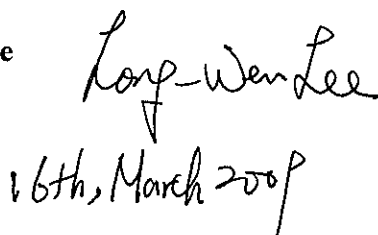 e Long-Wen Lee
16th, March 2009